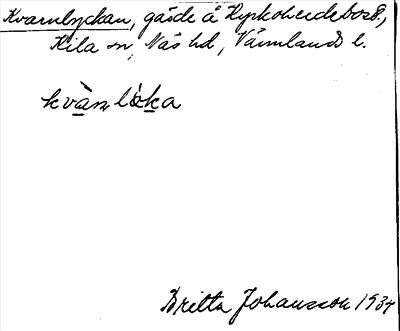 Kvarnlyckan, gärde å Kyrkoherdebost.,
Kila sn, Näs hd, Värmlands l.
kvànlòka
Britta Johansson 1934